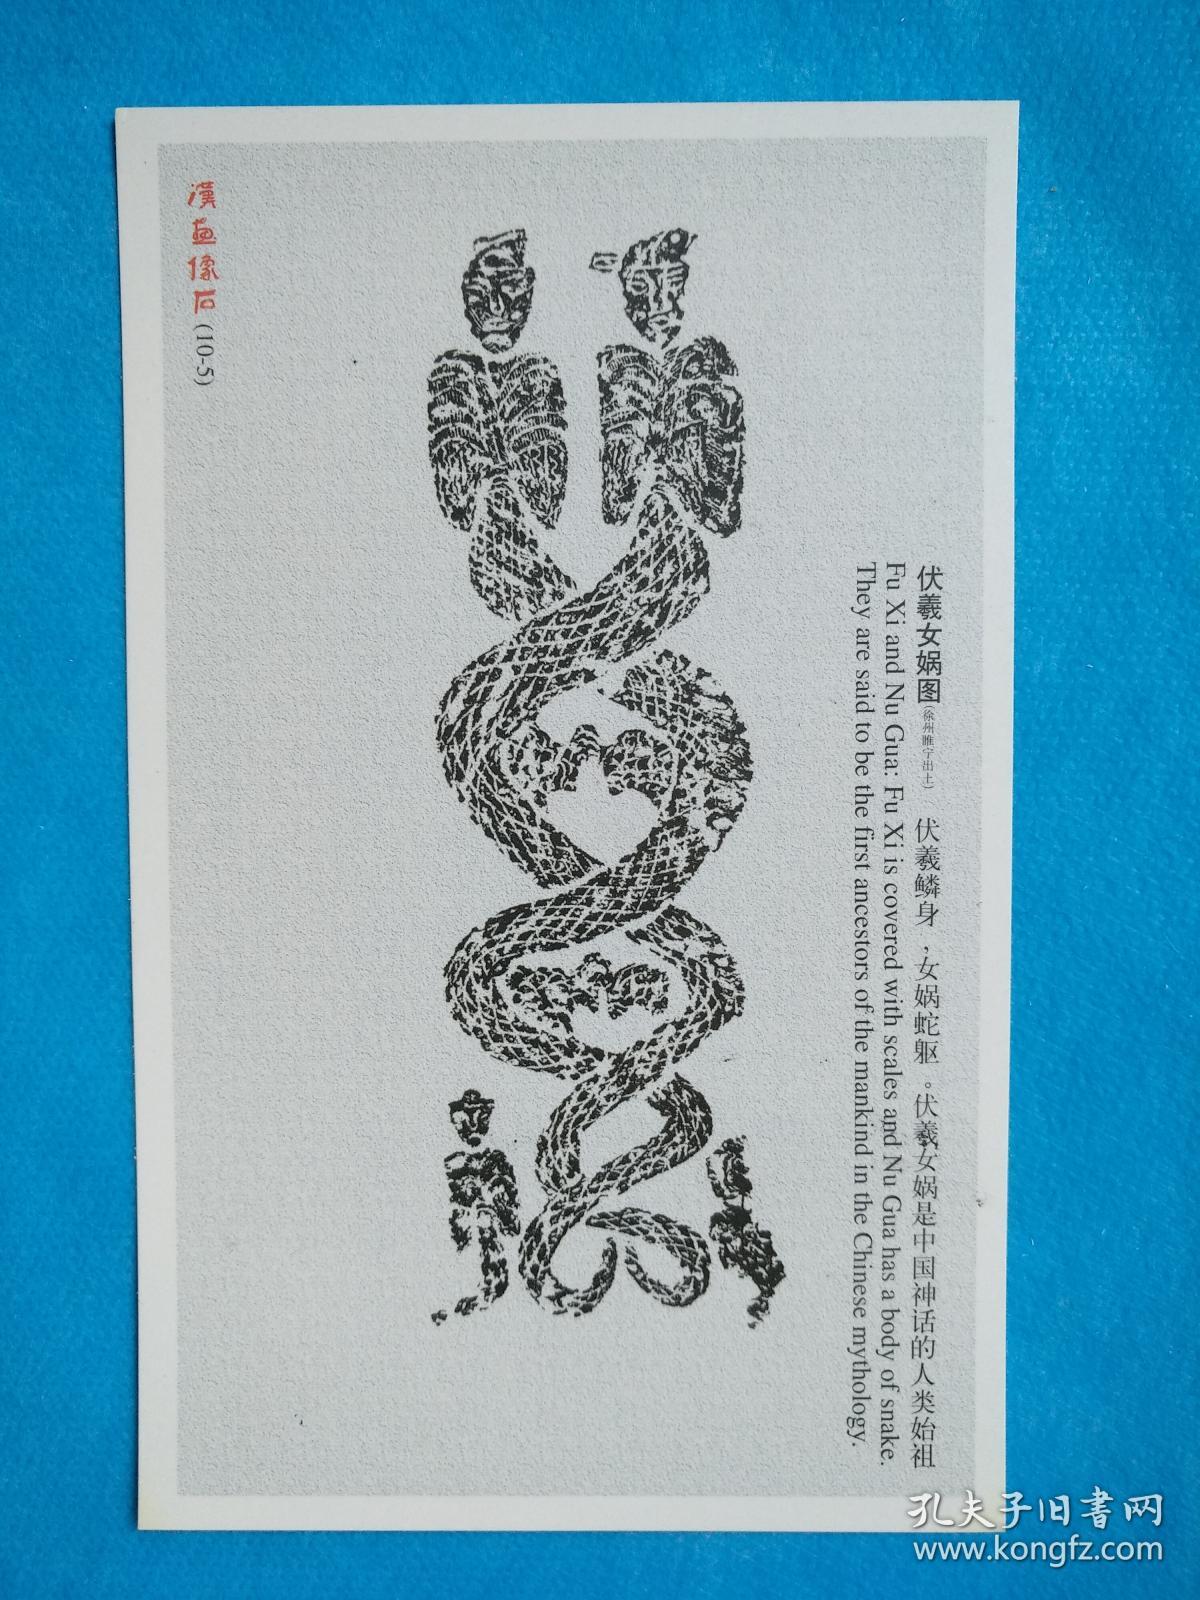 漢画像石(10-5)
伏羲女娲图(徐州睢宁出土) 伏羲鳞身,女娲蛇躯。伏羲女娲是中国神话的人类始祖
Fu Xi and Nu Gua: Fu Xi is covered with scales and Nu Gua has a body of snake.
They are said to be the first ancestors of the mankind in the Chinese mythology.
孔夫子旧书网
www.kongfz.com